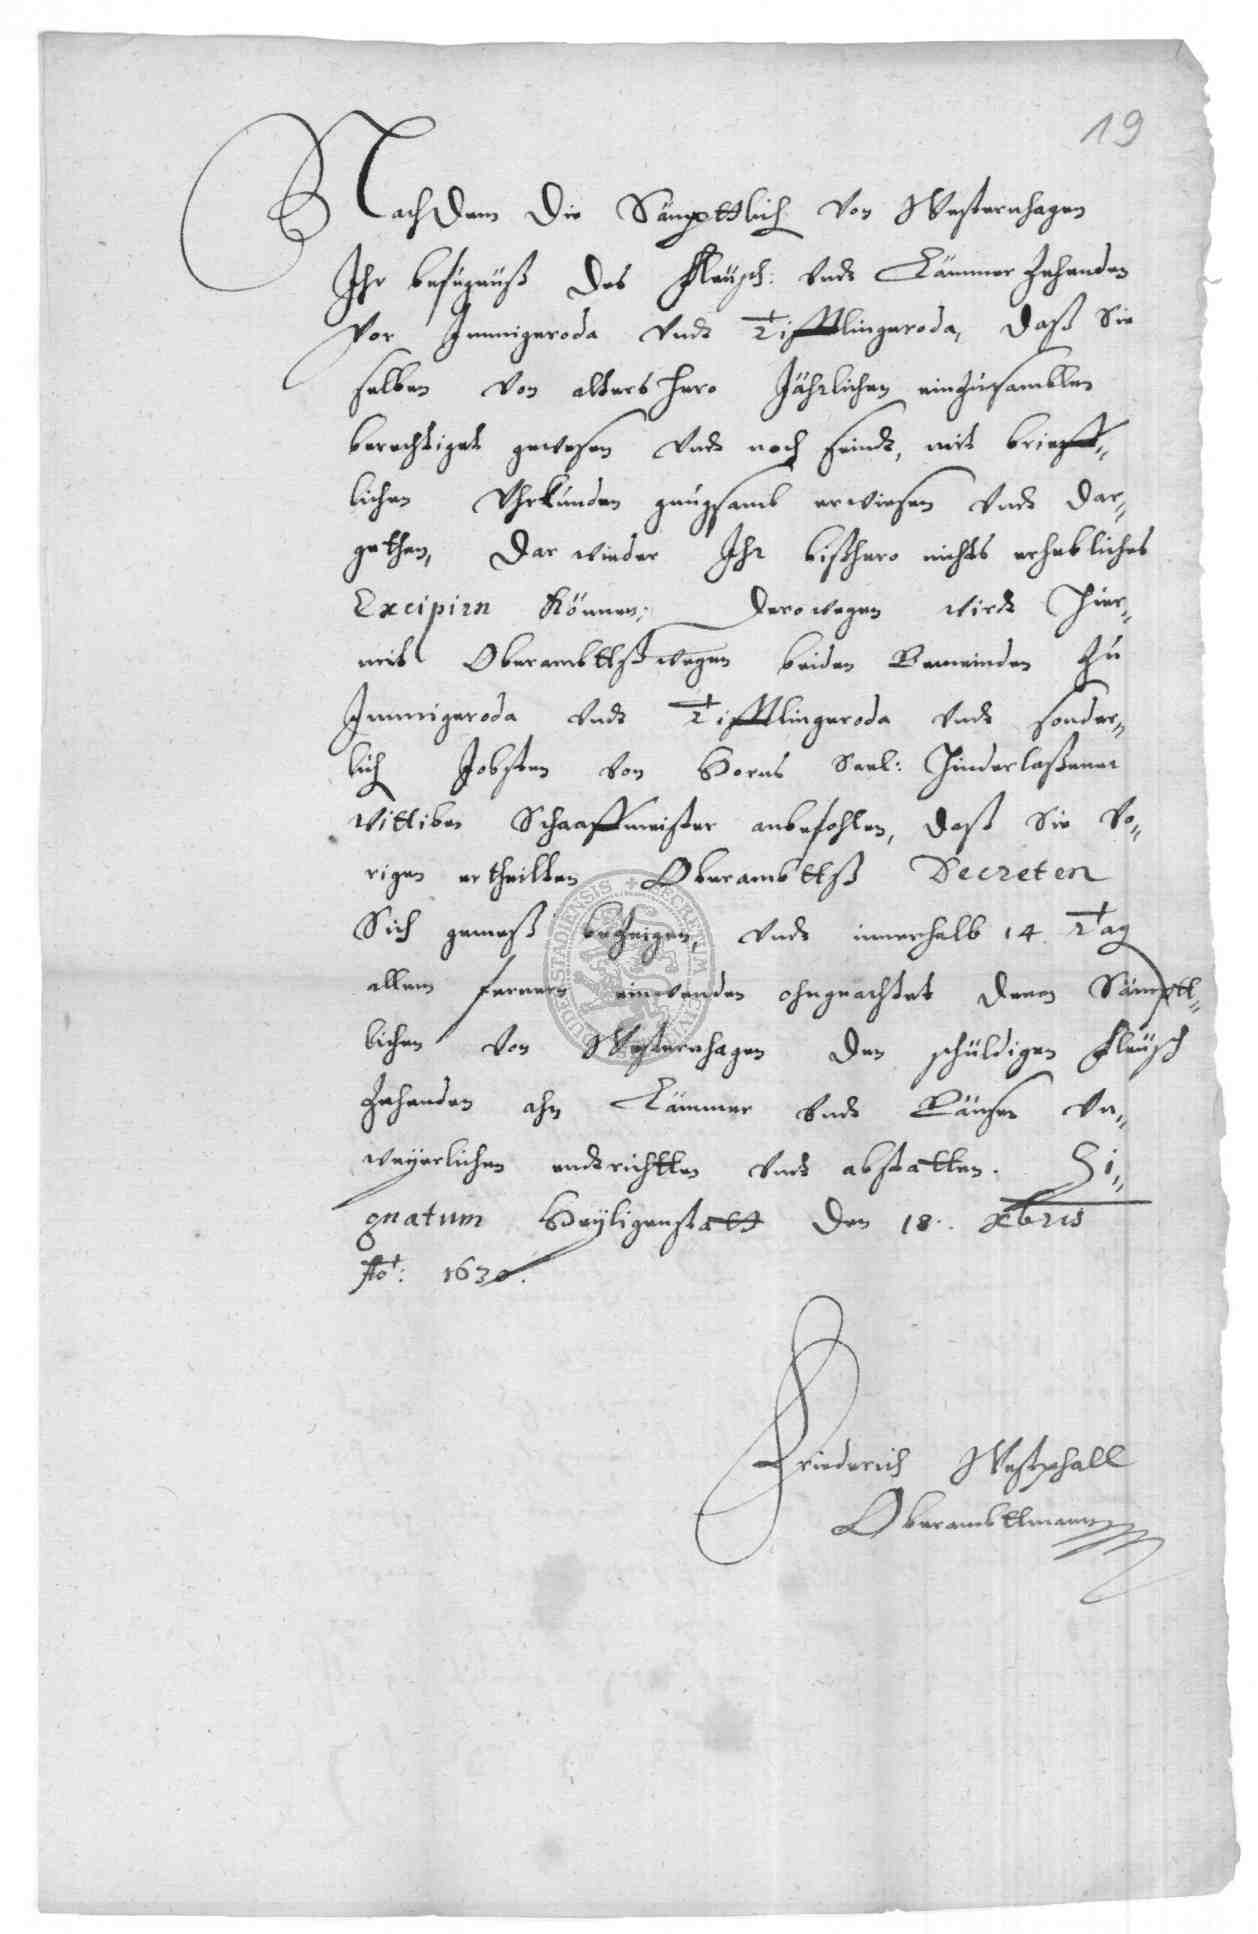 19
Nachdem die Sämpttlich von Westernhagen
Ihr befügnüß des Fleüsch: vndt Lämmer Zehenden
vor Immigeroda vndt Tifftlingeroda, daß Sie
selben von alters hero Jährlichen einzusamblen
berechtiget gewesen vndt noch seindt, mit brieff„
lichen Vhrkunden gnugsamb erwiesen vndt dar„
gethen, dar wieder Ihr bißhero nichts erhebliches
Excipirn können; derowegen wirdt hier„
mit Oberambttß wegen beiden Gemeinden zu
Immigeroda vndt Tifftlingeroda vndt sonder„
lich Jobsten von Horns Seel: hinderlaßener
wittiben Schaaffmeister anbefohlen, daß Sie vo„
rigen ertheilten Oberambttß Decreten
Sich gemeß bezeigen, vndt innerhalb 14 Tag
allem fernern einwenden ohngeachtet denen Sämptt„
lichen von Westernhagen den schüldigen Fleüsch
Zehenden ahn Lämmer vndt Gänsen vn„
weyerlichen endtrichtten vndt abstatten. Si„
gnatum Heyligenstatt den 18. xbris
Ao: 1630.
Friederich Westphall
Oberambttmann
SECRETUM CIVI UDERSTADIENSIS